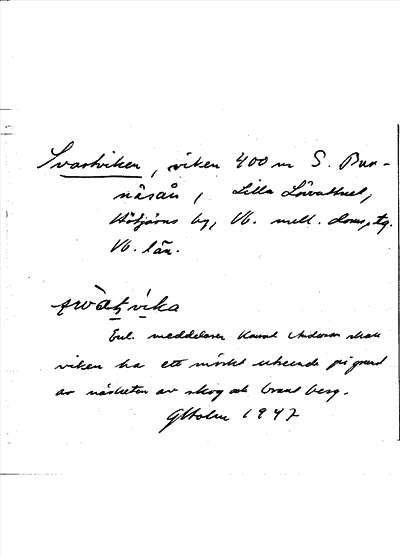 Svartviken, viken 400 m S. Bur-
näsån, Lilla Lövvattnet,
Högtjärns by, Vb. mell. doms. tg.
Vb. län.
svàtvíka
Enl. meddelaren Konrad Andersson skall
viken ha ett mörkt utseende på grund
av närheten av skog och brant berg.
G Holm 1947